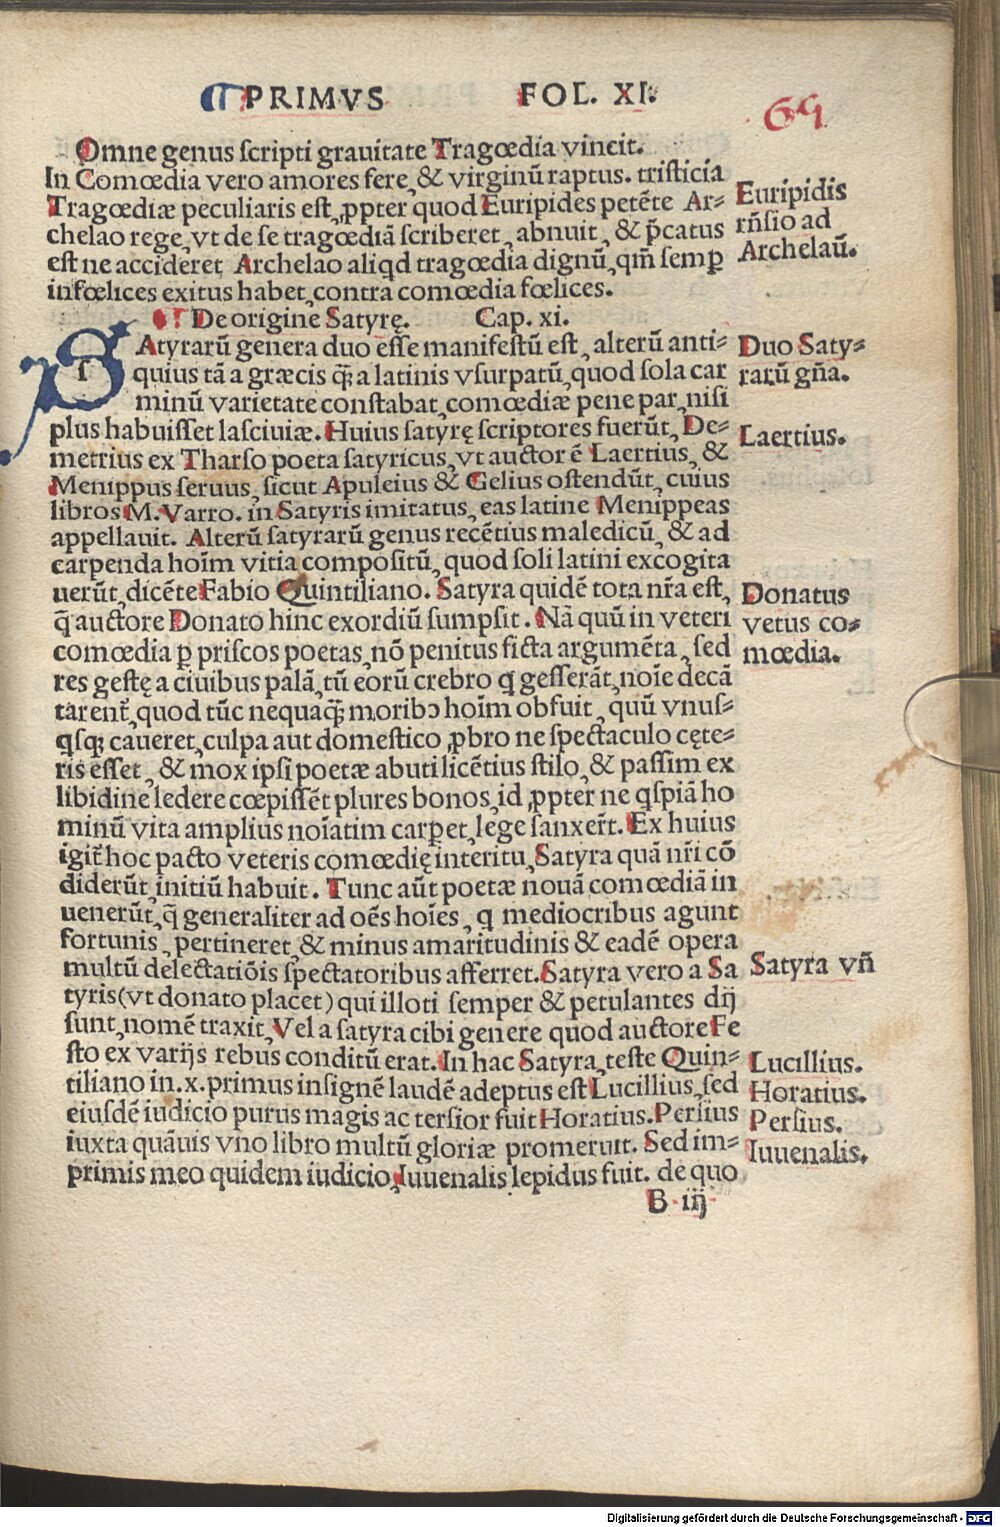 PRIMVS FOL. XI.
69
Omne genus ſcripti grauitate Tragœdia vincit.
In Comœdia vero amores fere, & virginū raptus. triſticia
Tragœdiæ peculiaris eſt, ꝓpter quod Euripides petēte Ar⸗
chelao rege, vt de ſe tragœdiā ſcriberet, abnuit, & p̄catus
eſt ne accideret Archelao aliqd tragœdia dignū, qm̄ ſemꝑ
infœlices exitus habet, contra comœdia fœlices.
Euripidis
rn̄ſio ad
Archelaū.
De origine Satyrę. Cap. xi.
SAtyrarū genera duo eſſe manifeſtū eſt, alterū anti⸗
quius tā a græcis ꝗ̄ a latinis vſurpatū, quod ſola car
minū varietate conſtabat, comœdiæ pene par, niſi
plus habuiſſet laſciuiæ. Huius ſatyrę ſcriptores fuerūt, De⸗
metrius ex Tharſo poeta ſatyricus, vt auctor ē Laertius, &
Menippus ſeruus, ſicut Apuleius & Gelius oſtendūt, cuius
libros M. Varro. in Satyris imitatus, eas latine Menippeas
appellauit. Alterū ſatyrarū genus recētius maledicū, & ad
carpenda hoīm vitia compoſitū, quod ſoli latini excogita
uerūt, dicēte Fabio Quintiliano. Satyra quidē tota nr̄a eſt,
q̄ auctore Donato hinc exordiū ſumpſit. Nā quū in veteri
comœdia ꝑ priſcos poetas, nō penitus ficta argumēta, ſed
res geſtę a ciuibus palā, tū eorū crebro q geſſerāt, noīe decā
tarent̄, quod tūc nequaꝗ̄ moribꝰ hoīm obfuit, quū vnuſ⸗
qſqꝫ caueret, culpa aut domeſtico ꝓbro ne ſpectaculo cęte⸗
ris eſſet, & mox ipſi poetæ abuti licētius ſtilo, & paſſim ex
libidine ledere cœpiſſēt plures bonos, id ꝓpter ne qſpiā ho
minū vita amplius noīatim carꝑet, lege ſanxer̄t. Ex huius
igit̄ hoc pacto veteris comœdię interitu, Satyra quā nr̄i cō
diderūt, initiū habuit. Tunc aūt poetæ nouā comœdiā in
uenerūt, q̄ generaliter ad oēs hoīes, q mediocribus agunt
fortunis, pertineret, & minus amaritudinis & eadē opera
multū delectatiōis ſpectatoribus afferret. Satyra vero a Sa
tyris (vt donato placet) qui illoti ſemper & petulantes dij
ſunt, nomē traxit, Vel a ſatyra cibi genere quod auctore Fe
ſto ex varijs rebus conditū erat. In hac Satyra, teſte Quin⸗
tiliano in. x. primus inſignē laudē adeptus eſt Lucillius, ſed
eiuſdē iudicio purus magis ac terſior fuit Horatius. Perſius
iuxta quāuis vno libro multū gloriæ promeruit. Sed im⸗
primis meo quidem iudicio, Iuuenalis lepidus fuit. de quo
Duo Saty⸗
rarū gn̄a.
Laertius.
Donatus
vetus co⸗
mœdia.
Satyra vn̄
Lucillius.
Horatius.
Perſius.
Iuuenalis.
B iij
Digitalisierung gefördert durch die Deutsche Forschungsgemeinschaft - DFG